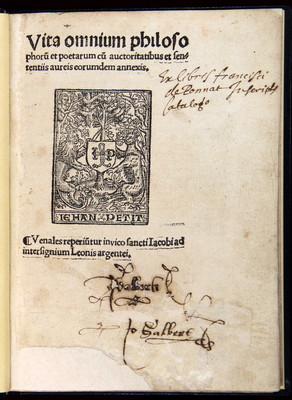 Vita omnium philoso
phorũ et poetarum cũ auctoritatibus et sen-
tentiis aureis eorumdem annexis.
Ex libris francisci
de Ponnat Inscriptus
Catalogo
I P
IEHAN PETIT
¶ Venales reperiũtur in vico sancti Iacobi ad
intersignium Leonis argentei.
Galbert
Jo Galbert